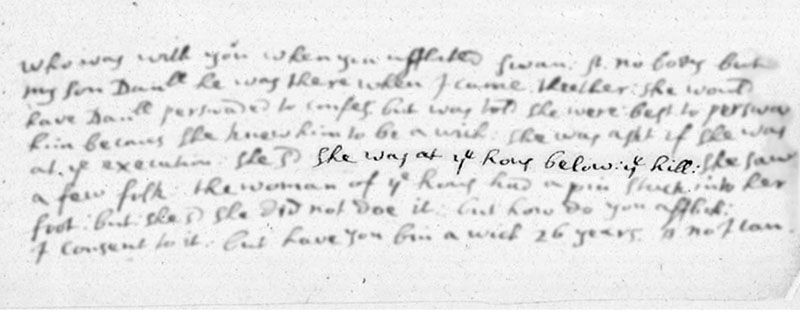 who was with you when you afflicted Swan. A. no body but
my son Daniell he was there when I came theether: she would
have Daniell perswaded to confess but was told she were best to perswa
him becaus she knew him to be a wich: she was askt if she was
at ye execution: she sd she was at ye hous below: ye hill: she saw
a few folk: the woman of ye hous had a pin stuck into her
foot: but she sd she did not doe it. but how do you afflict:
I consent to it: but have you bin a wich 26 years. A no I can